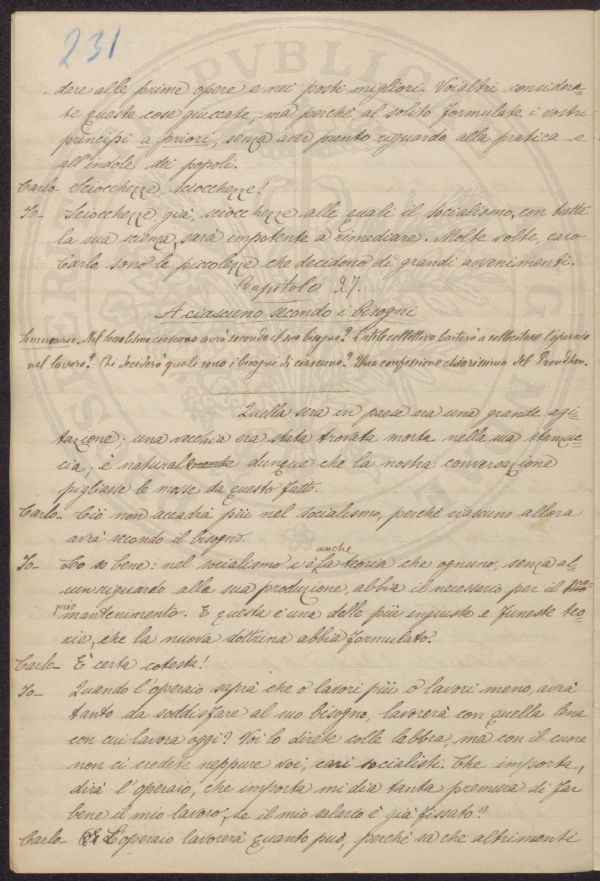 231
dare alle prime opere e nei posti migliori. Voialtri considera-
te queste cose giuccate, ma perchè al solito formulate i vostri
principi a priori, senza aver punto riguardo alla pratica e
all'indole dei popoli.
Carlo- Sciocchezze, sciocchezze!
Io- Sciocchezze già, sciocchezze alle quali il socialismo, con tutta
la sua scienza, sarà impotente a rimediare. Molte volte, caro
Carlo, sono le piccolezze che decidono di grandi avvenimenti.
Capitolo 27.
A ciascuno secondo i bisogni
Sommario. Nel Socialismo ciascuno avrà secondo il suo bisogno? L'utile collettivo basterà a sollecitare l'operaio
nel lavoro? Chi deciderà quali sono i bisogni di ciascuno? Una confessione chiarissima del Proudhon.
Quella sera in paese era una grande agi-
tazione; una vecchia era stata trovata morta nella sua stamuc-
cia; è naturale dunque che la nostra conversazione
pigliasse le mosse da questo fatto.
Carlo- Ciò non accadrà più nel socialismo, perchè ciascuno allora
avrà secondo il bisogno.
Io- Lo so bene: nel socialismo c'è anche la teoria che ognuno, senza al-
cun riguardo alla sua produzione, abbia il necessario per il pro-
prio mantenimento. E questa è una delle più ingiuste e funeste teo-
rie, che la nuova dottrina abbia formulato.
Carlo- È certa cotesta!
Io- Quando l'operaio saprà che o lavori più o lavori meno, avrà
tanto da soddisfare al suo bisogno, lavorerà con quella lena
con cui lavora oggi? Voi lo direte colle labbra, ma con il cuore
non ci credete neppure voi, cari socialisti. Che importa,
dirà l'operaio, che importa mi dia tanta premura di far
bene il mio lavoro, se il mio salario è già fissato?
Carlo- L'operaio lavorerà quanto può, perchè sa che altrimenti